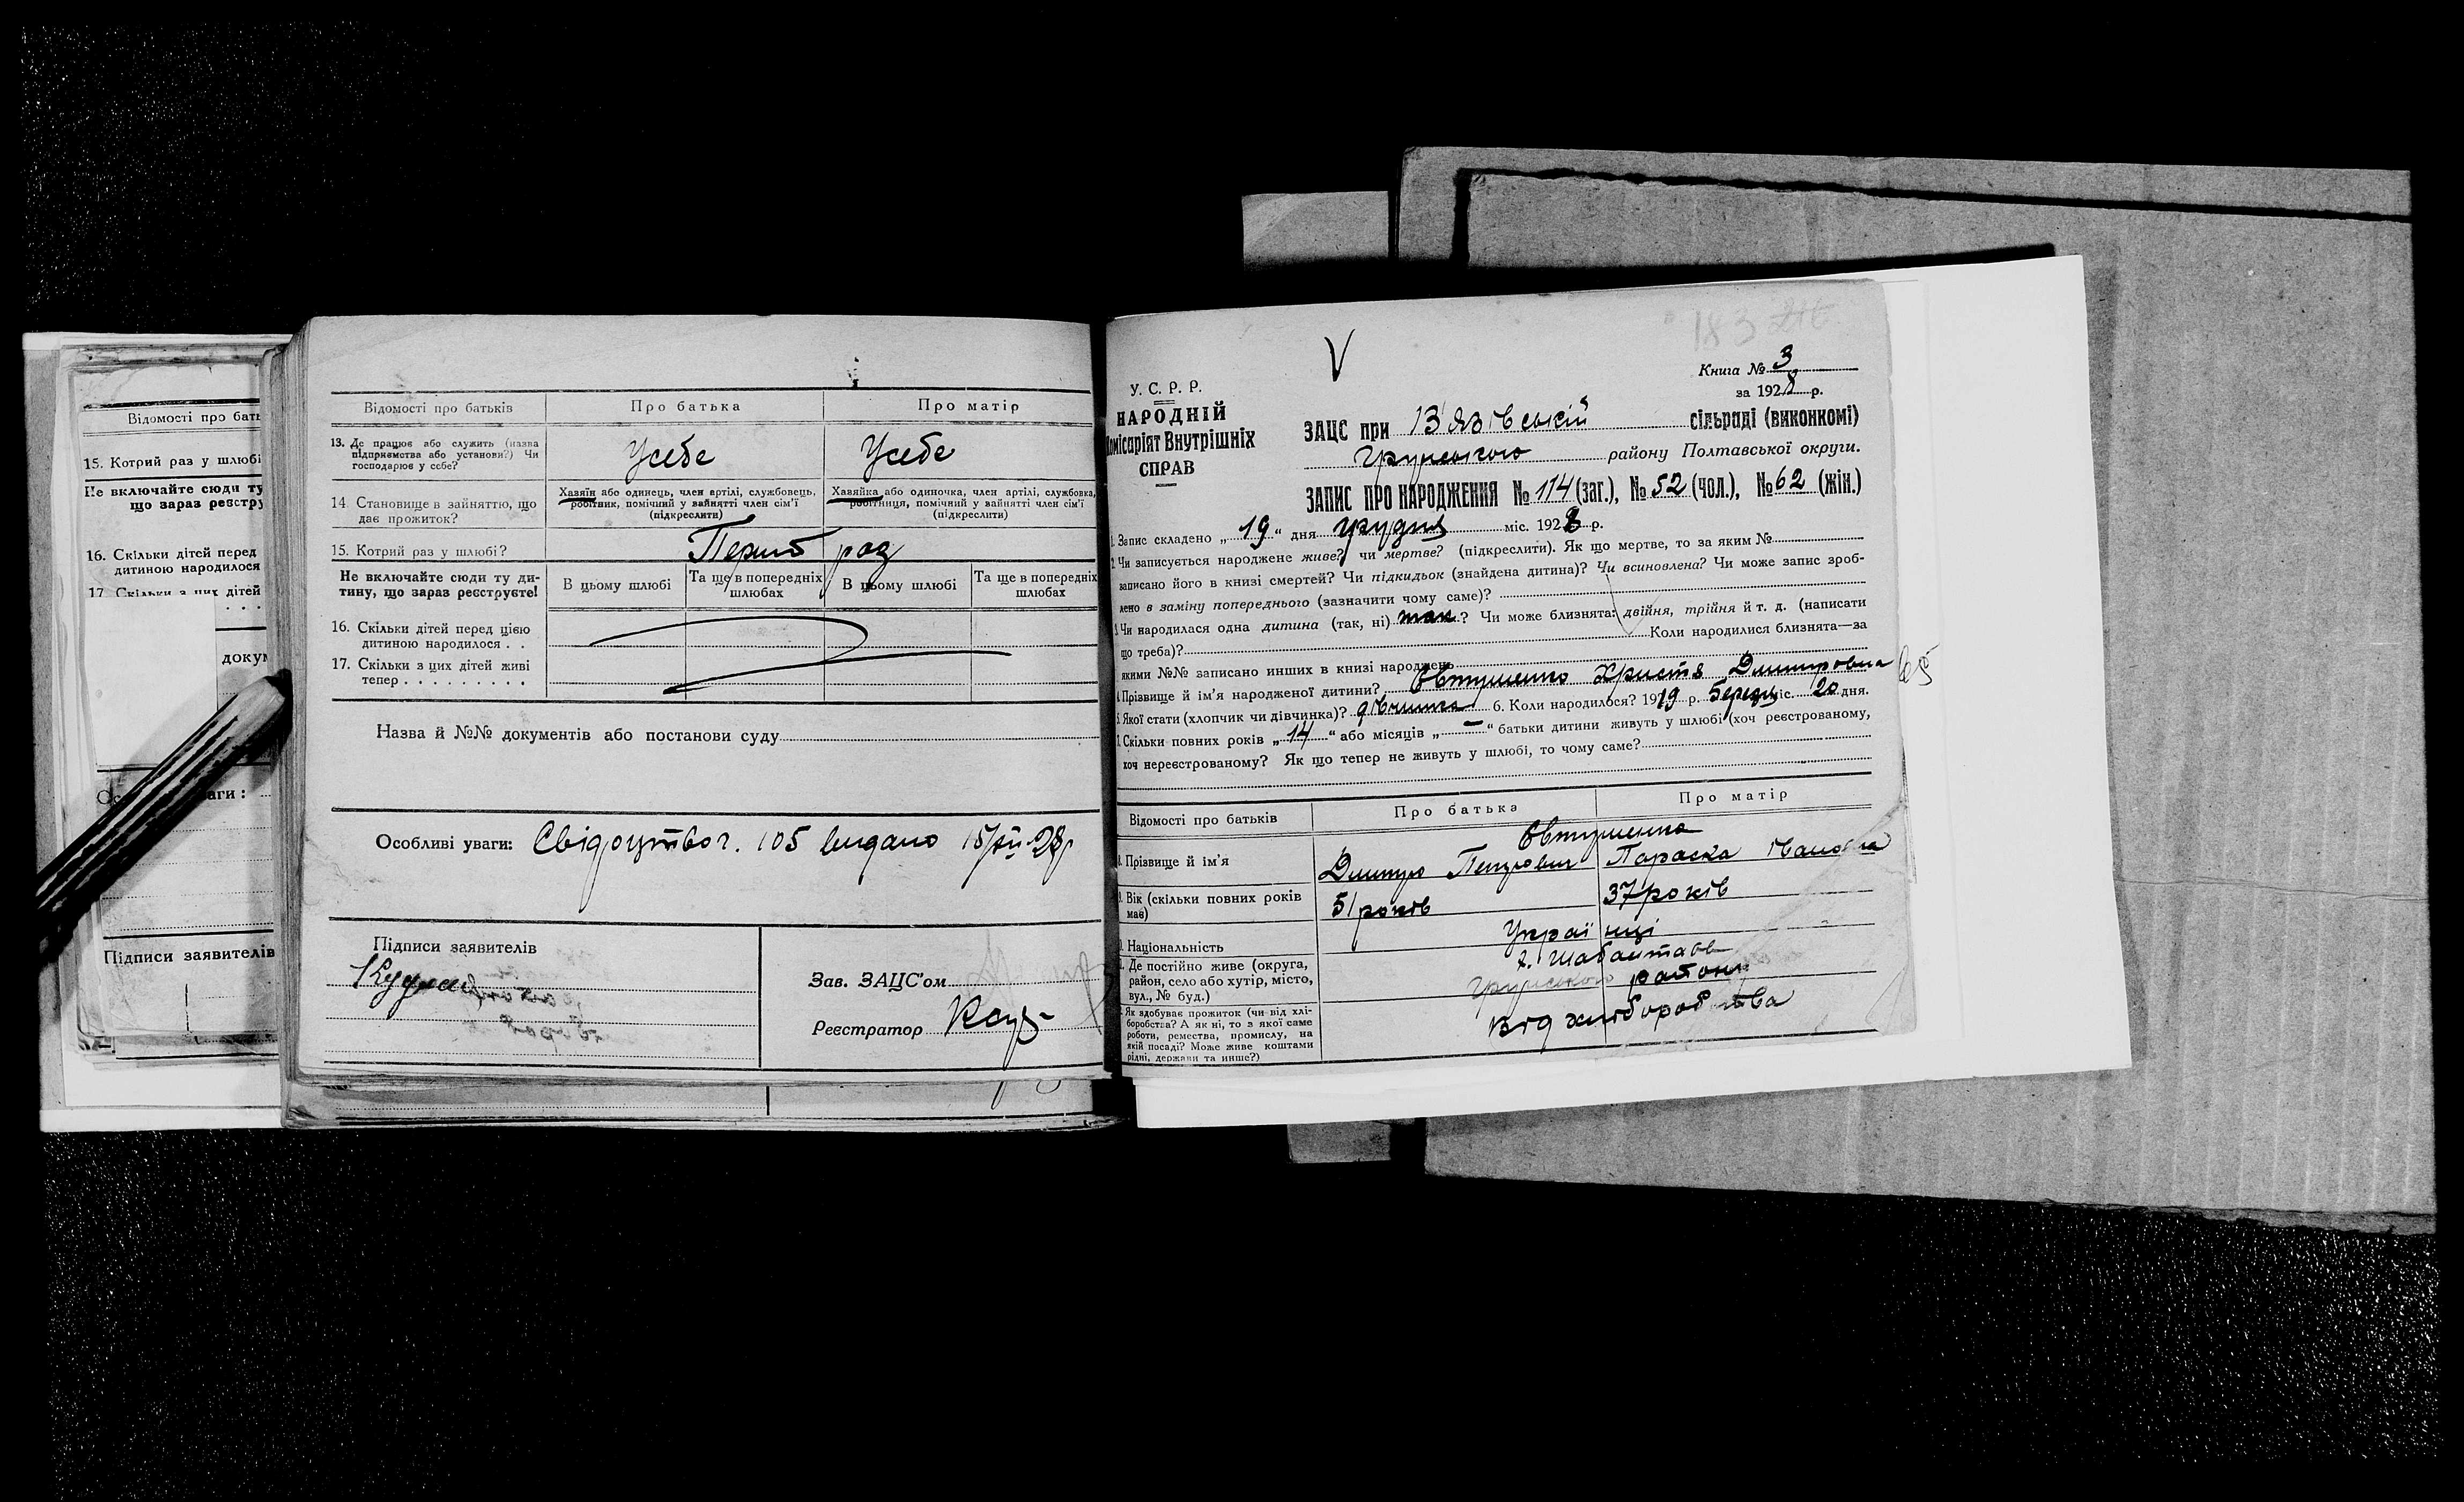 Відомості про бать
15. Котрий раз у шлюбі
Не включайте сюди ту
що зараз реєстру
16. Скільки дітей перед
дитиною народилося
17. Скільки з цих дітей
докум
аги:
Підписи заявителів
Відомості про батьків
Про батька
Про матір
13. Де працює або служить (назва підприємства або установи?) Чи господарює у себе?
Усебе
Усебе
14. Становище в зайняттю, що дає прожиток?
Хазяїн або одинець, член артілі, службовець, робітник, помічний у занятті член сім'ї (підкреслити)
Хазяйка або одиночка, член артілі, службовка, робітниця, помічний у занятті член сім'ї (підкреслити)
15. Котрий раз у шлюбі?
Перший раз
Не включайте сюди ту ди-
тину, що зараз реєструєте!
В цьому шлюбі
Та ще в попередніх шлюбах
В цьому шлюбі
Та ще в попередніх шлюбах
16. Скільки дітей перед цією
дитиною народилося . .
17. Скільки з цих дітей живі
тепер . . . . . . . . .
Назва й №№ документів або постанови суду
Особливі уваги: Свідоцтво ч. 105 видано 15/XII-28р
Підписи заявителів
Зав. ЗАЦС'ом
Реєстратор
V
183
Книга № 3
за 1928 р.
У. С. Р. Р.
НАРОДНІЙ
Комісаріят Внутрішніх
СПРАВ
ЗАЦС при сільраді (виконкомі)
Грунського району Полтавської округи.
ЗАПИС ПРО НАРОДЖЕННЯ № 114 (заг.), № 52 (чол.), № 62 (жін.)
1. Запис складено „ 19 " дня грудня міс. 1928 р.
2. Чи записується народжене живе? чи мертве? (підкреслити). Як що мертве, то за яким №
записано його в книзі смертей? Чи підкидьок (знайдена дитина)? Чи всиновлена? Чи може запис зроб-
лено в заміну попереднього (зазначити чому саме)?
3. Чи народилася одна дитина (так, ні) так ? Чи може близнята: двійня, трійня й т. д. (написати
що треба)? Коли народилися близнята—за
якими №№ записано инших в книзі народжень
4. Прізвище й ім'я народженої дитини? Євтушенко Христя Дмитровна
5. Якої стати (хлопчик чи дівчинка)? дівчинка 6. Коли народилося? 1919 р. Березня міс. 20 дня.
7. Скільки повних років „ 14 " або місяців „ — " батьки дитини живуть у шлюбі (хоч реєстрованому,
хоч нереєстрованому? Як що тепер не живуть у шлюбі, то чому саме?
Відомості про батьків
Про батька
Про матір
8. Прізвище й ім'я
Євтушенко
Дмитро Петрович
Параска Івановна
9. Вік (скільки повних років має)
51 років
37 років
10. Національність
Українці
11. Де постійно живе (округа, район, село або хутір, місто, вул., № буд.)
Грунського району
12. Як здобуває прожиток (чи від хлі-
боробства? А як ні, то з якої саме
роботи, ремества, промислу, на
якій посаді? Може живе коштами
рідні, держави та инше?)
від хліборобства